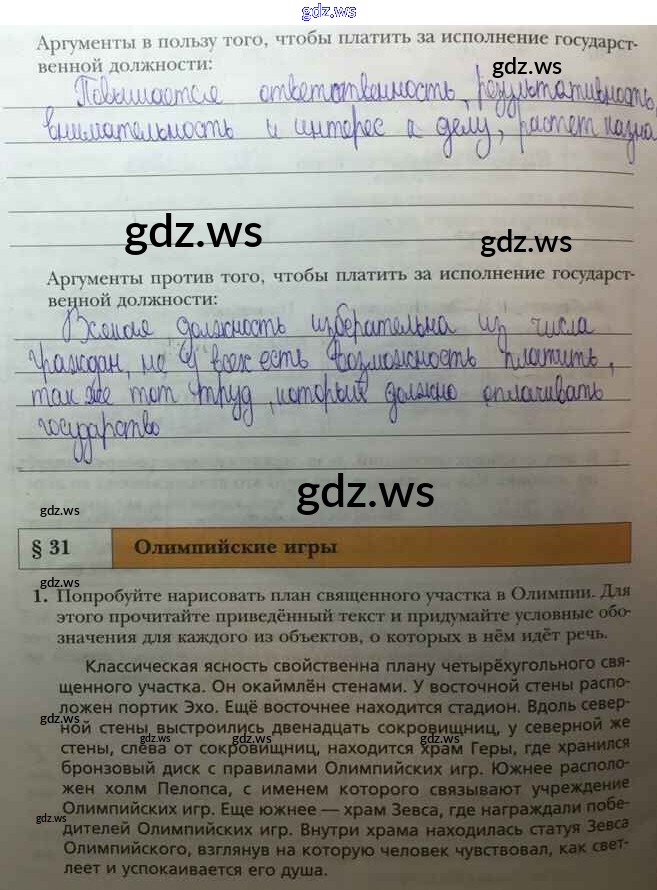 gdz.ws
Аргументы в пользу того, чтобы платить за исполнение государст-
gdz.ws
венной должности:
Повышается ответственность, результативность,
внимательность и интерес к делу, растет казна
gdz.ws
gdz.ws
Аргументы против того, чтобы платить за исполнение государст-
венной должности:
Всякая должность избирательна из числа
граждан, не у всех есть возможность платить,
так же тот труд, которые должно оплачивать
государство
gdz.ws
gdz.ws
§ 31 Олимпийские игры
gdz.ws
gdz.ws
1. Попробуйте нарисовать план священного участка в Олимпии. Для
этого прочитайте приведённый текст и придумайте условные обо-
значения для каждого из объектов, о которых в нём идёт речь.
Классическая ясность свойственна плану четырёхугольного свя-
щенного участка. Он окаймлён стенами. У восточной стены распо-
ложен портик Эхо. Ещё восточнее находится стадион. Вдоль север-
gdz.ws
ной стены выстроились двенадцать сокровищниц, у северной же
gdz.ws
стены, слева от сокровищниц, находится храм Геры, где хранился
бронзовый диск с правилами Олимпийских игр. Южнее располо-
жен холм Пелопса, с именем которого связывают учреждение
Олимпийских игр. Еще южнее — храм Зевса, где награждали побе-
gdz.ws
дителей Олимпийских игр. Внутри храма находилась статуя Зевса
Олимпийского, взглянув на которую человек чувствовал, как свет-
леет и успокаивается его душа.